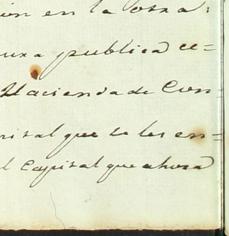 ion en la Posa:
uxa publica ce=
Hacienda de Con-
pital que se les en=
l Capital que ahora